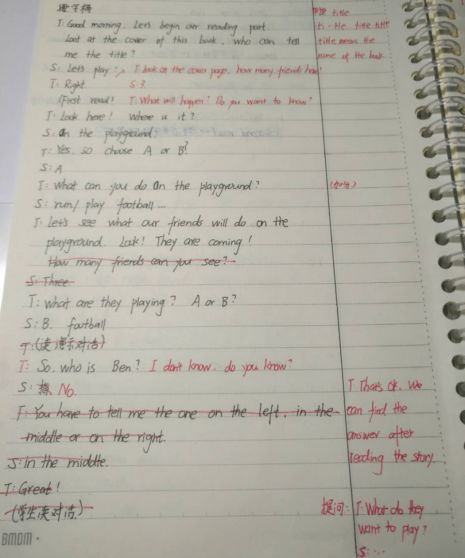 T: Good morning. Let's begin our reading part.
Look at the cover of this book, who can tell
me the title?
title
ti-tle title title
title means the
name of the book.
S: Let's play!
T: Look at the cover page, how many friends here?
T: Right.
S: 3.
(First read)
T: What will happen? Do you want to know?
T: Look here! Where is it?
S: On the playground.
T: Yes, so choose A or B?
S: A
T: What can you do on the playground?
S: run/ play football...
T: Let's see what our friends will do on the
playground. Look! They are coming!
How many friends can you see?
S: Three
T: What are they playing? A or B?
S: B. football
T: So, who is Ben? I don't know, do you know?
S: No.
T: That's ok. We
can find the
answer after
reading the story.
T: You have to tell me the one on the left, in the
middle or on the right.
S: In the middle.
T: Great!
提问: T: What do they
want to play?
S: ...
BMDM